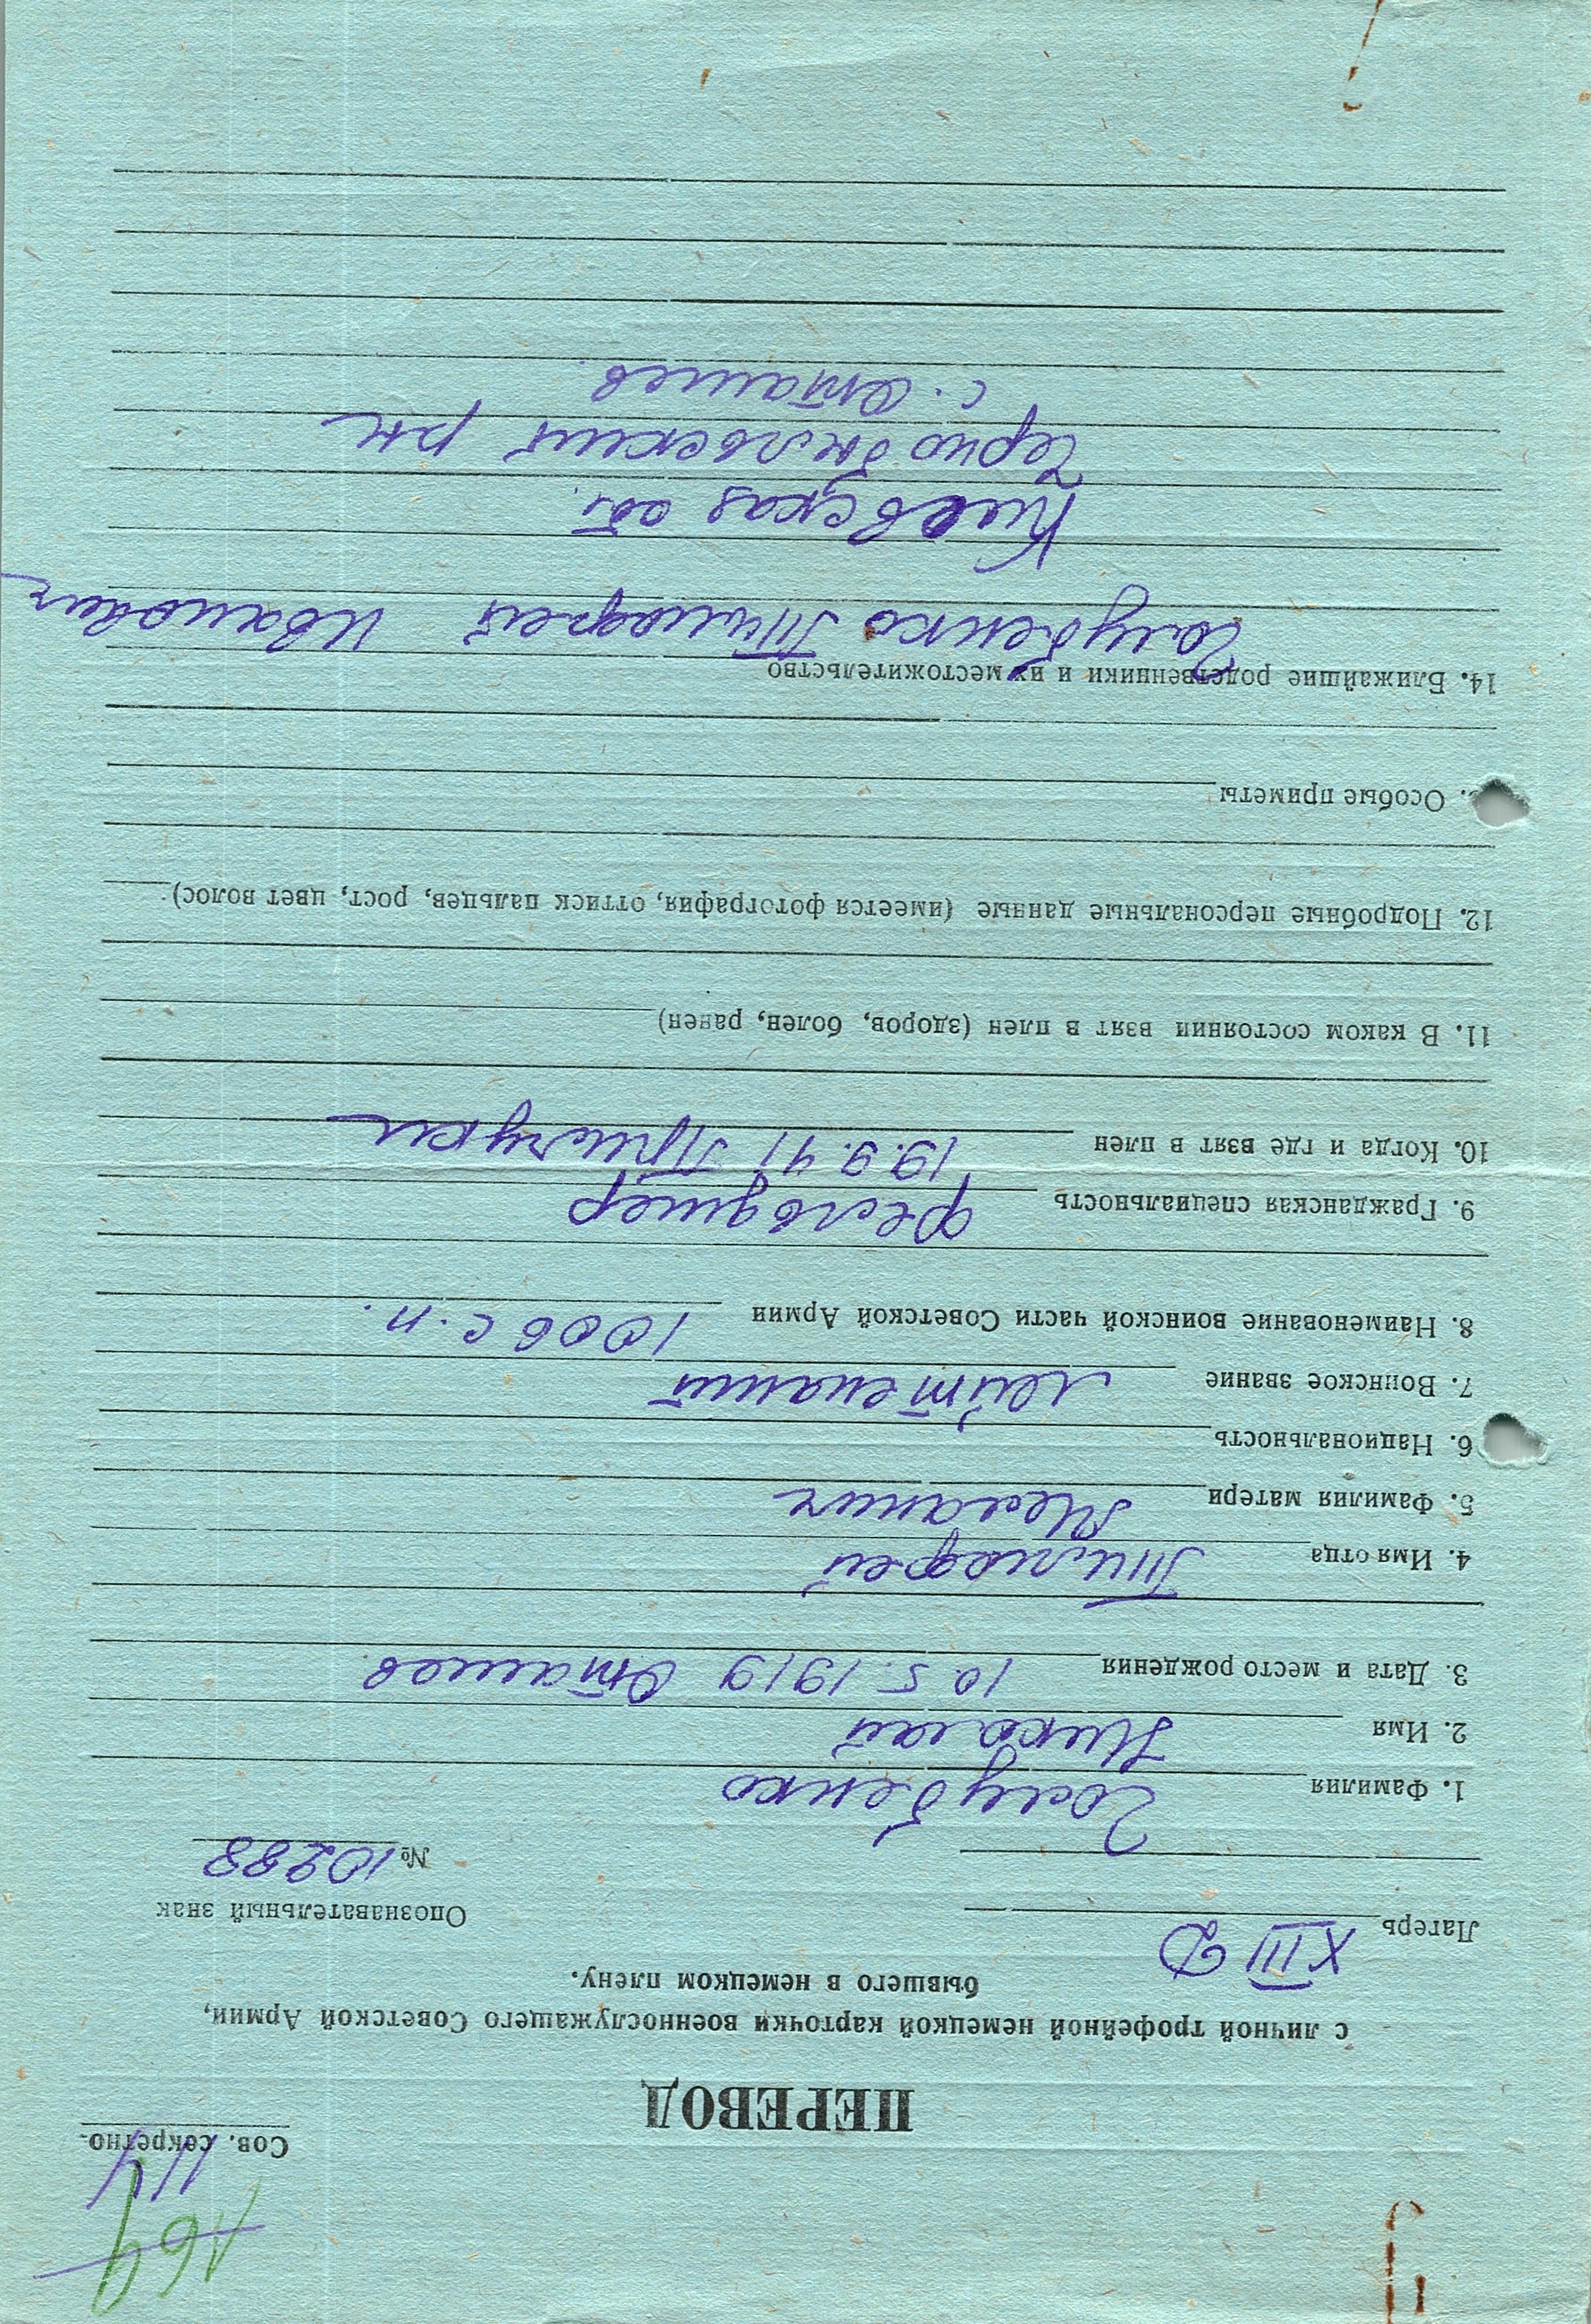 164
114
Сов. секретно.
ПЕРЕВОД
с личной трофейной немецкой карточки военнослужащего Советской Армии,
бывшего в немецком плену.
Лагерь XIII D Опознавательный знак
№ 10288
1. Фамилия Голубенко
2. Имя Николай
3. Дата и место рождения 10.5.1919 Оташев
4. Имя отца Тимофей
5. Фамилия матери
6. Национальность
7. Воинское звание Лейтенант
8. Наименование воинской части Советской Армии 1006 с.п.
9. Гражданская специальность фельдшер
10. Когда и где взят в плен 19.9.41 Прилуки
11. В каком состоянии взят в плен (здоров, болен, ранен)
12. Подробные персональные данные (имеется фотография, оттиск пальцев, рост, цвет волос)
. Особые приметы
14. Ближайшие родственники и их местожительство
Голубенко Тимофей Иванович
Киевская обл.
Чернобыльский р-н
с. Оташев.